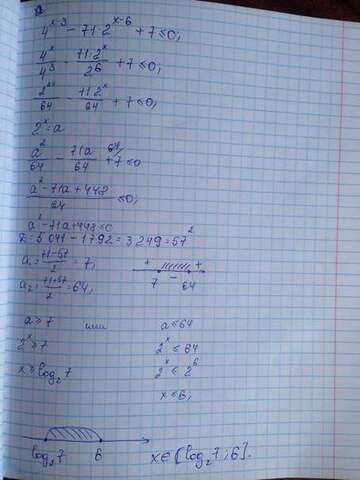 4^(x-3) - 71·2^(x-6) + 7 ≤ 0;
4^x/4^3 - 71·2^x/2^6 + 7 ≤ 0;
2^(2x)/64 - 71·2^x/64 + 7 ≤ 0;
2^x = a
a^2/64 - 71a/64 + 7^(64/ ≤ 0
(a^2 - 71a + 448)/64 ≤ 0;
a^2 - 71a + 448 ≤ 0
D = 5041 - 1792 = 3249 = 57^2
a1 = (71-57)/2 = 7;
+ - +
7 64
a2 = (71+57)/2 = 64;
a ≥ 7 или a ≤ 64
2^x ≥ 7 2^x ≤ 64
x ≥ log_2 7 2^x ≤ 2^6
x ≤ 6;
log_2 7 6 x ∈ [log_2 7; 6].